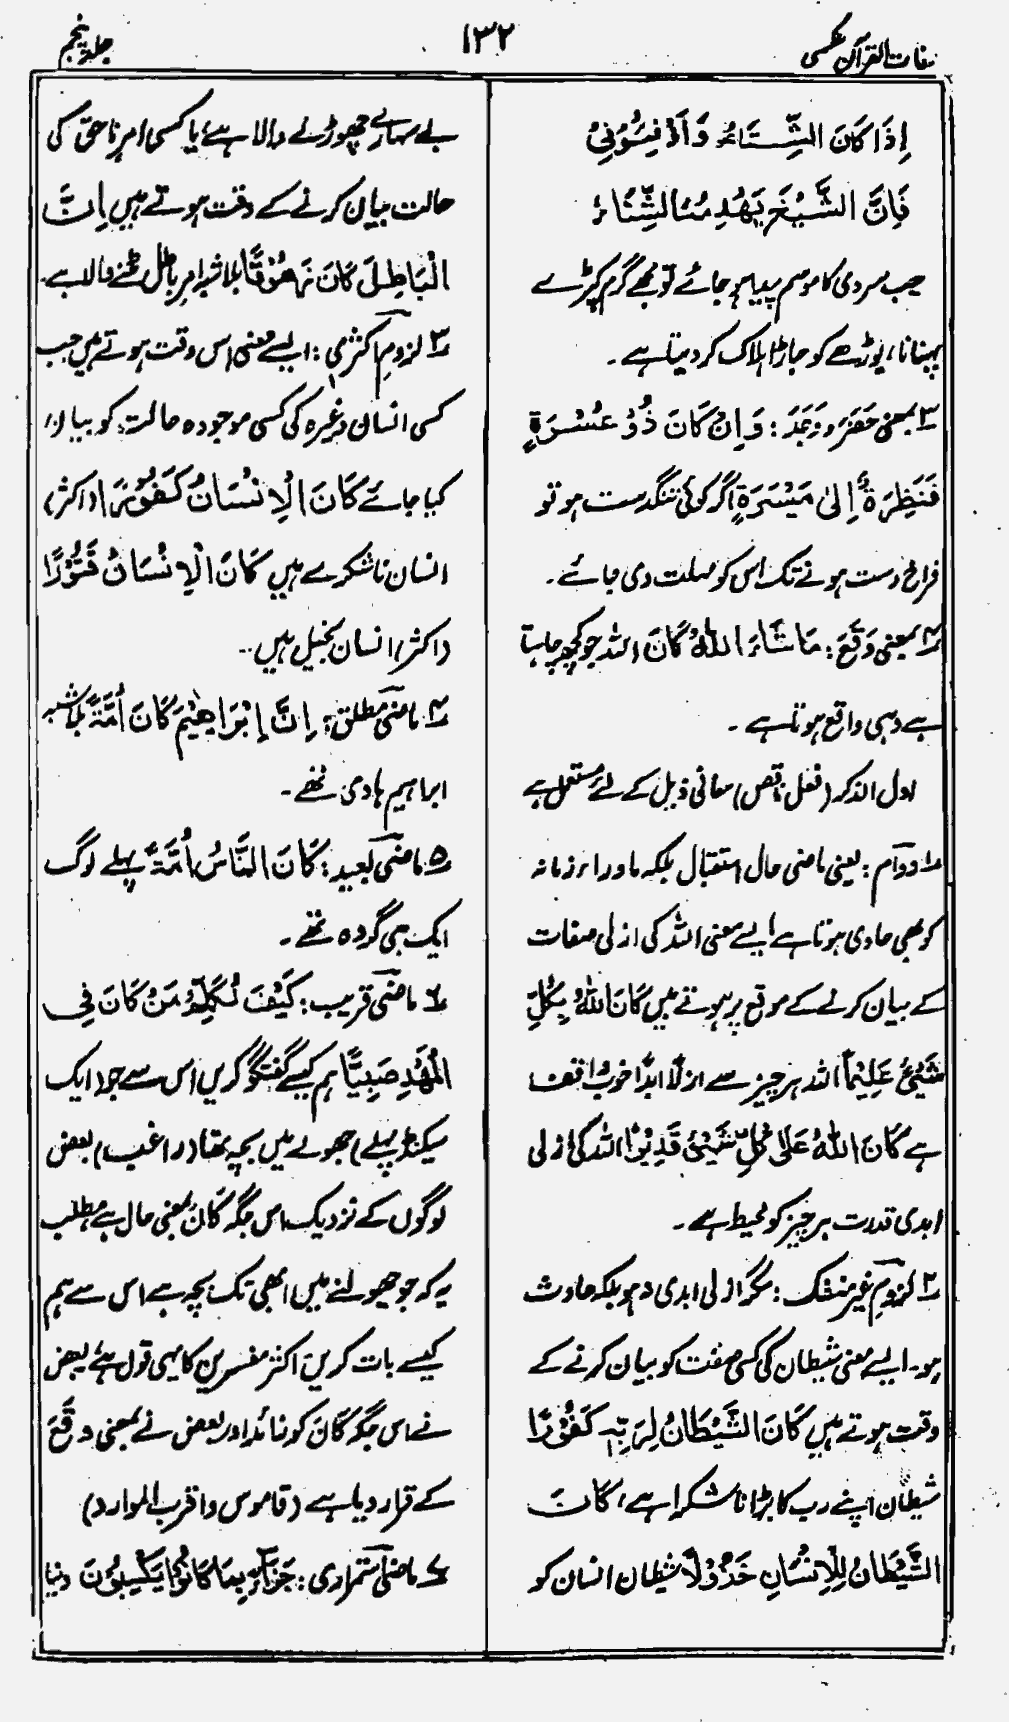 لغات القرآن عکسی
۱۳۲
جلد پنجم
إِذَا كَانَ الشِّتَاءُ فَأَدْفِئُوْنِیْ
فَإِنَّ الشَّيْخَ يَهْدِمُهُ الشِّتَاءُ
جب سردی کا موسم پیدا ہو جائے تو مجھے گرم کپڑے
پہنانا، بوڑھے کو جاڑا ہلاک کر دیتا ہے۔
۳ بمعنی حَضَرَ و وَجَدَ: وَاِنْ كَانَ ذُوْ عُسْرَةٍ
فَنَظِرَةٌ اِلیٰ مَيْسَرَةٍ اگر کوئی تنگدست ہو تو
فراخ دست ہونے تک اس کو مہلت دی جائے۔
۴ بمعنی وَقَعَ: مَا شَاءَ اللّٰهُ كَانَ اللہ جو کچھ چاہتا
ہے وہی واقع ہوتا ہے۔
اول الذکر (فعل ناقص) معانی ذیل کے لئے مستعمل ہے
۱ دوام: یعنی ماضی حال استقبال بلکہ ماوراء زمانہ
کو بھی حاوی ہوتا ہے ایسے معنی اللہ کی ازلی صفات
کے بیان کرنے کے موقع پر ہوتے ہیں كَانَ اللّٰهُ بِكُلِّ
شَيْءٍ عَلِيْماً اللہ ہر چیز سے ازلاً ابداً خوب واقف
ہے كَانَ اللّٰهُ عَلَىٰ كُلِّ شَيْءٍ قَدِيْراً اللہ کی ازلی
ابدی قدرت ہر چیز کو محیط ہے۔
۲ لزومِ غیر منفک: مگر ازلی ابدی نہ ہو بلکہ حادث
ہو۔ ایسے معنی شیطان کی کسی صفت کو بیان کرنے کے
وقت ہوتے ہیں كَانَ الشَّيْطَانُ لِرَبِّهٖ كَفُوْرًا
شیطان اپنے رب کا بڑا ناشکرا ہے، كَانَ
الشَّيْطَانُ لِلْاِنْسَانِ خَذُوْلًا شیطان انسان کو
بے سہارے چھوڑنے والا ہے، یا کسی امر ناحق کی
حالت بیان کرنے کے وقت ہوتے ہیں اِنَّ
الْبَاطِلَ كَانَ زَهُوْقًا بلاشبہ امر باطل مٹنے والا ہے۔
۳ لزومِ اکثری: ایسے معنی اس وقت ہوتے ہیں جب
کسی انسان وغیرہ کی کسی موجودہ حالت کو بیان
کیا جائے كَانَ الْاِنْسَانُ كَفُوْرًا (اکثر)
انسان ناشکرے ہیں كَانَ الْاِنْسَانُ قَتُوْرًا
(اکثر) انسان بخیل ہیں۔
۴ ماضی مطلق: اِنَّ اِبْرَاهِيْمَ كَانَ اُمَّةً بلاشبہ
ابراہیم ہادی تھے۔
۵ ماضی بعید: كَانَ النَّاسُ اُمَّةً پہلے لوگ
ایک ہی گروہ تھے۔
۶ ماضی قریب: كَيْفَ نُكَلِّمُ مَنْ كَانَ فِي
الْمَهْدِ صَبِيًّا ہم کیسے گفتگو کریں اس سے جو (ایک
سیکنڈ پہلے) جھولے میں بچہ تھا (راغب) بعض
لوگوں کے نزدیک اس جگہ كَانَ بمعنی حال ہے مطلب
یہ کہ جو جھولنے میں ابھی تک بچہ ہے اس سے ہم
کیسے بات کریں اکثر مفسرین کا یہی قول ہے بعض
نے اس جگہ كَانَ کو زائد اور بعض نے بمعنی وَقَعَ
کے قرار دیا ہے (قاموس و اقرب الموارد)
۷ ماضی استمراری: جَزَاءً بِمَا كَانُوْا يَكْسِبُوْنَ دنیا